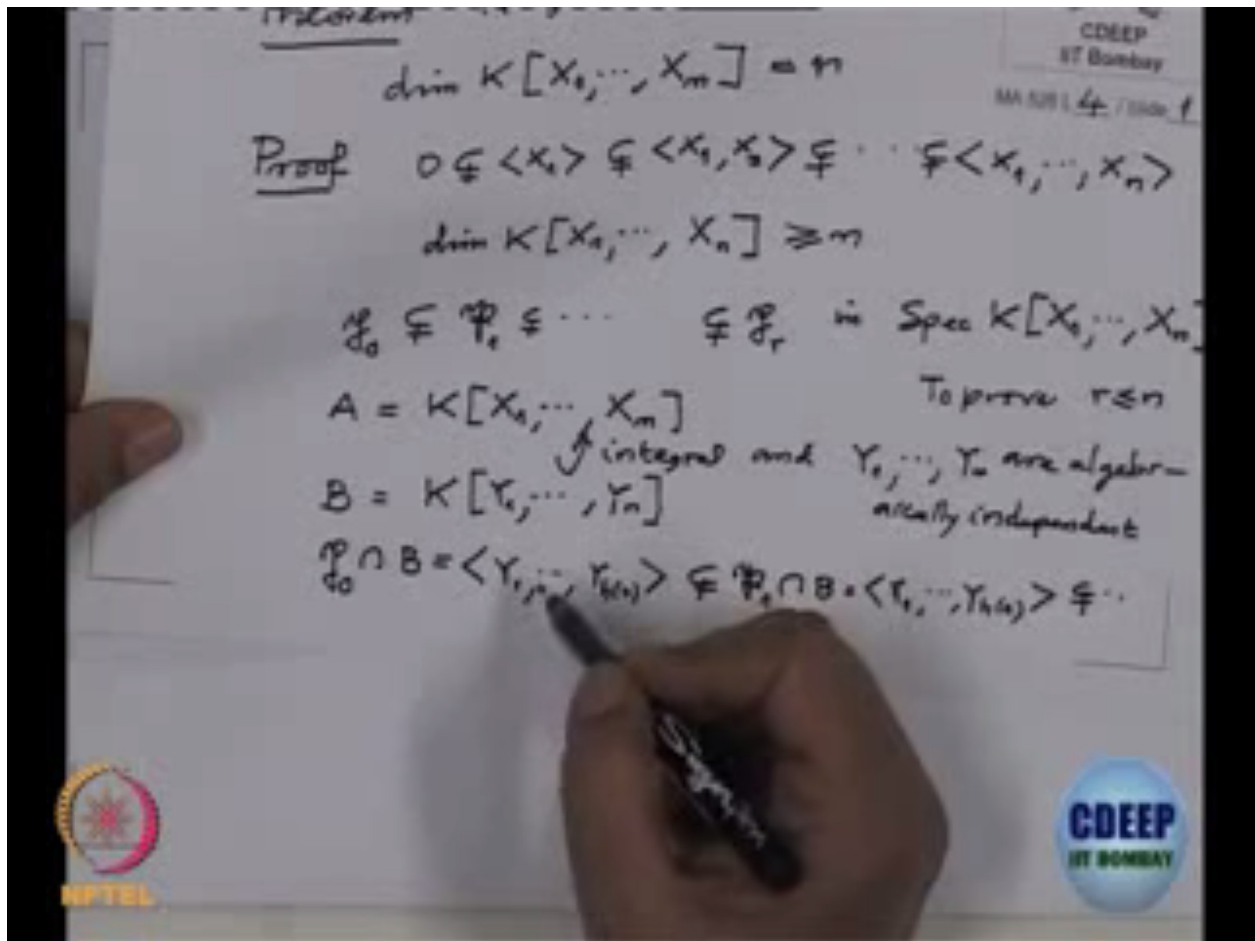 Theorem
CDEEP
IIT Bombay
MA 526 L 4 / slide 1
dim K[X₁,⋯, Xₙ] = n
Proof 0 ⊊ <X₁> ⊊ <X₁, X₂> ⊊ ⋯ ⊊ <X₁,⋯, Xₙ>
dim K[X₁,⋯, Xₙ] ≥ n
𝔭₀ ⊊ 𝔭₁ ⊊ ⋯ ⊊ 𝔭ᵣ in Spec K[X₁,⋯, Xₙ]
To prove r ≤ n
A = K[X₁,⋯, Xₙ]
integral and Y₁,⋯, Yₙ are algebr-
aically independent
B = K[Y₁,⋯, Yₙ]
𝔭₀ ∩ B = <Y₁,⋯, Y_{h(0)}> ⊊ 𝔭₁ ∩ B = <Y₁,⋯, Y_{h(1)}> ⊊ ⋯
NPTEL
CDEEP
IIT BOMBAY